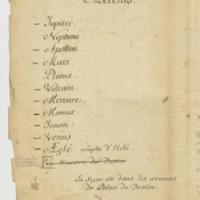 Acteurs
– Jupiter
Neptune
– Apollon
– Mars
Plutus
– Vulcain
– Mercure
– Momus
– Junon
– Venus
– Æglé nimphe d'Hébé
Le Ministre du Destin
La scene est dans les avenues
du Palais du Destin.